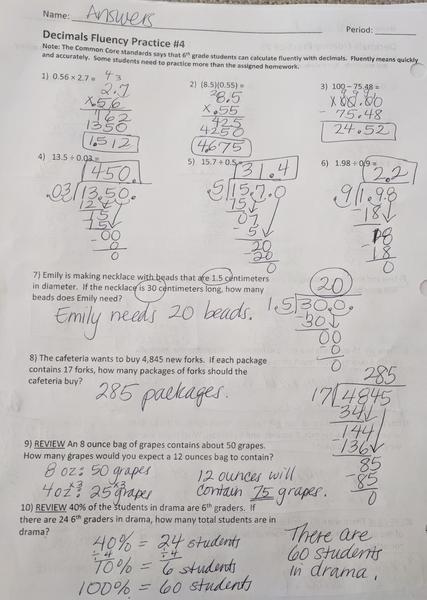 Name: Answers
Period:
Decimals Fluency Practice #4
Note: The Common Core standards say that 6th grade students can calculate fluently with decimals. Fluently means quickly
and accurately. Some students need to practice more than the assigned homework.
1) 0.56 × 2.7 =
4 3
2.7
×.56
162
1350
1.512
2) (8.5)(0.55) =
2
8.5
×.55
425
4250
4.675
3) 100 – 75.48 =
9 9 9
100.00
- 75.48
24.52
4) 13.5 ÷ 0.03 =
450.
.03 13.50.
12
15
15
-00
0
0
5) 15.7 ÷ 0.5 =
31.4
.5 15.7.0
15
07
- 5
20
-20
0
6) 1.98 ÷ 0.9 =
2.2
.9 1.9.8
-18
18
-18
0
7) Emily is making necklace with beads that are 1.5 centimeters
in diameter. If the necklace is 30 centimeters long, how many
beads does Emily need?
Emily needs 20 beads.
20
1.5 30.0.
-30
00
-0
0
8) The cafeteria wants to buy 4,845 new forks. If each package
contains 17 forks, how many packages of forks should the
cafeteria buy?
285 packages.
285
17 4845
34
-144
-136
85
-85
0
9) REVIEW An 8 ounce bag of grapes contains about 50 grapes.
How many grapes would you expect a 12 ounces bag to contain?
8 oz: 50 grapes
4 oz: 25 grapes
×3 ×3
12 ounces will
contain 75 grapes.
10) REVIEW 40% of the students in drama are 6th graders. If
there are 24 6th graders in drama, how many total students are in
drama?
40% = 24 students
÷4 ÷4
10% = 6 students
100% = 60 students
There are
60 students
in drama.